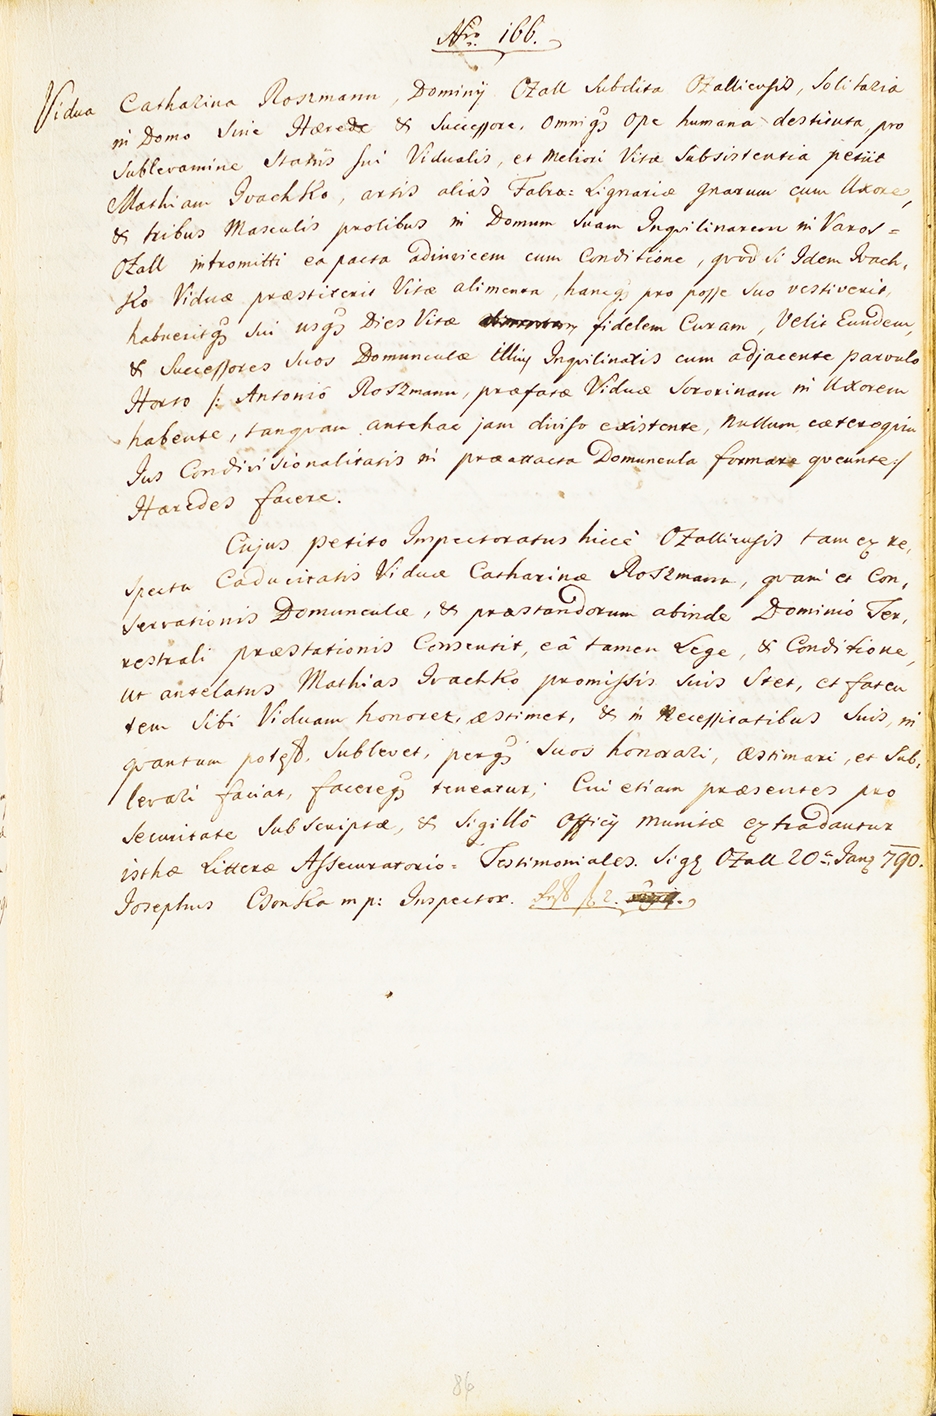 Nro 166.
Vidua Catharina Roszmann, Dominÿ Ozall Subdita Ozalliensis, Solitaria
in Domo sine Hærede & Successore, omniq₃ ope humana destituta, pro
sublevamine Statûs sui Vidualis, et meliori Vitæ Subsistentia petiit
Mathiam Ivachko, artis aliàs Fabra: Lignariæ gnarum cum Uxore,
& tribus Masculis prolibus in Domum suam Inquilinarem in Varos=
Ozall intromitti ea pacta adinvicem cum Conditione, quòd si Idem Ivach,
ko Viduæ præstiterit Vitæ alimenta, hancq₃ pro posse suo vestiverit,
habueritq₃ sui usq₃ Dies Vitæ fidelem Curam, Velit Eundem,
& Successores suos Domunculæ illius Inquilinaris cum adjacente parvulo
Horto /: Antonio Roszmann, præfatæ Viduæ Sororinam in Uxorem
habente, tanquam antehac jam diviso existente, nullum cæteroquin
Jus Condivisionalitatis in præattacta Domuncula formare qveunte:/
Hæredes facere.
Cujus petito Inspectoratus hicce Ozalliensis tam ex re,
spectu Caducitatis Viduæ Catharinæ Roszmann, quam et Con,
servationis Domunculæ, & præstandorum abinde Dominio Ter,
restrali præstationis Consentit, eâ tamen Lege, & Conditione,
ut antelatus Mathias Ivachko promissis suis stet, et faten
tem sibi Viduam honoret, æstimet, & in Necessitatibus suis, in
quantum potest, sublevet, perq₃ suos honorari, æstimari, et sub,
levari faciat, facereq₃ teneatur; Cui etiam præsentes pro
securitate subscriptæ, & sigillô Officÿ munitæ extradantur
isthæ Litteræ Assecuratorio= Testimoniales. Sig. Ozall 20a Jan. 790.
Josephus Csonka mp: Inspector.
86